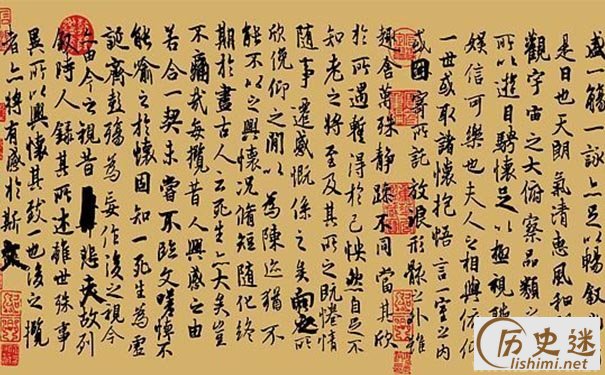 盛一觴一詠亦足以暢敘
是日也天朗氣清惠風和
觀宇宙之大俯察品類之
所以遊目騁懷足以極視聽
娛信可樂也夫人之相與俯仰
一世或取諸懷抱悟言一室之內
或因寄所託放浪形骸之外雖
趣舍萬殊靜躁不同當其欣
於所遇暫得於己快然自足不
知老之將至及其所之既惓情
隨事遷感慨係之矣向之所
欣俛仰之閒以為陳迹猶不
能不以之興懷況脩短隨化終
期於盡古人云死生亦大矣豈
不痛哉每攬昔人興感之由
若合一契未嘗不臨文嗟悼不
能喻之於懷固知一死生為虛
誕齊彭殤為妄作後之視今
亦由今之視昔悲夫故列
敘時人錄其所述雖世殊事
異所以興懷其致一也後之攬
者亦將有感於斯文
历史迷
lishimi.net